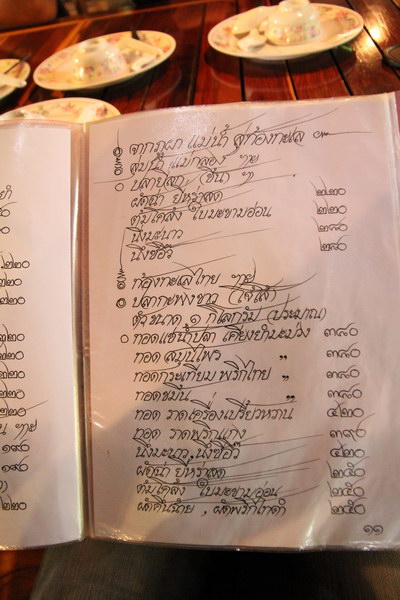 จากภูผา แม่น้ำ สู่ท้องทะเล
ลุ่มน้ำ แม่กลอง ฯ
ปลา
ผัดฉ่า ยี่หร่าสด ๒๒๐
ต้มโคล้ง ใบมะขามอ่อน ๒๒๐
นึ่งมะนาว ๒๘๐
นึ่งซีอิ๊ว ๒๘๐
ท้องทะเลไทย ฯ
ปลากะพงขาว
ตัวขนาด ๑ กิโลกรัม (ประมาณ)
ทอดแช่น้ำปลา เคียงยำมะม่วง ๓๘๐
ทอด สมุนไพร " ๓๘๐
ทอดกระเทียม พริกไทย " ๓๘๐
ทอดขมิ้น " ๓๘๐
ทอด ราดเครื่องเปรี้ยวหวาน ๔๒๐
ทอด ราดพริกแกง ๓๙๐
นึ่งมะนาว, นึ่งซีอิ๊ว ๔๒๐
ผัดฉ่า ยี่หร่าสด ๒๕๐
ต้มโคล้ง ใบมะขามอ่อน ๒๕๐
ผัดคื่นฉ่าย , ผัดพริกไทดำ ๒๕๐
๑๑